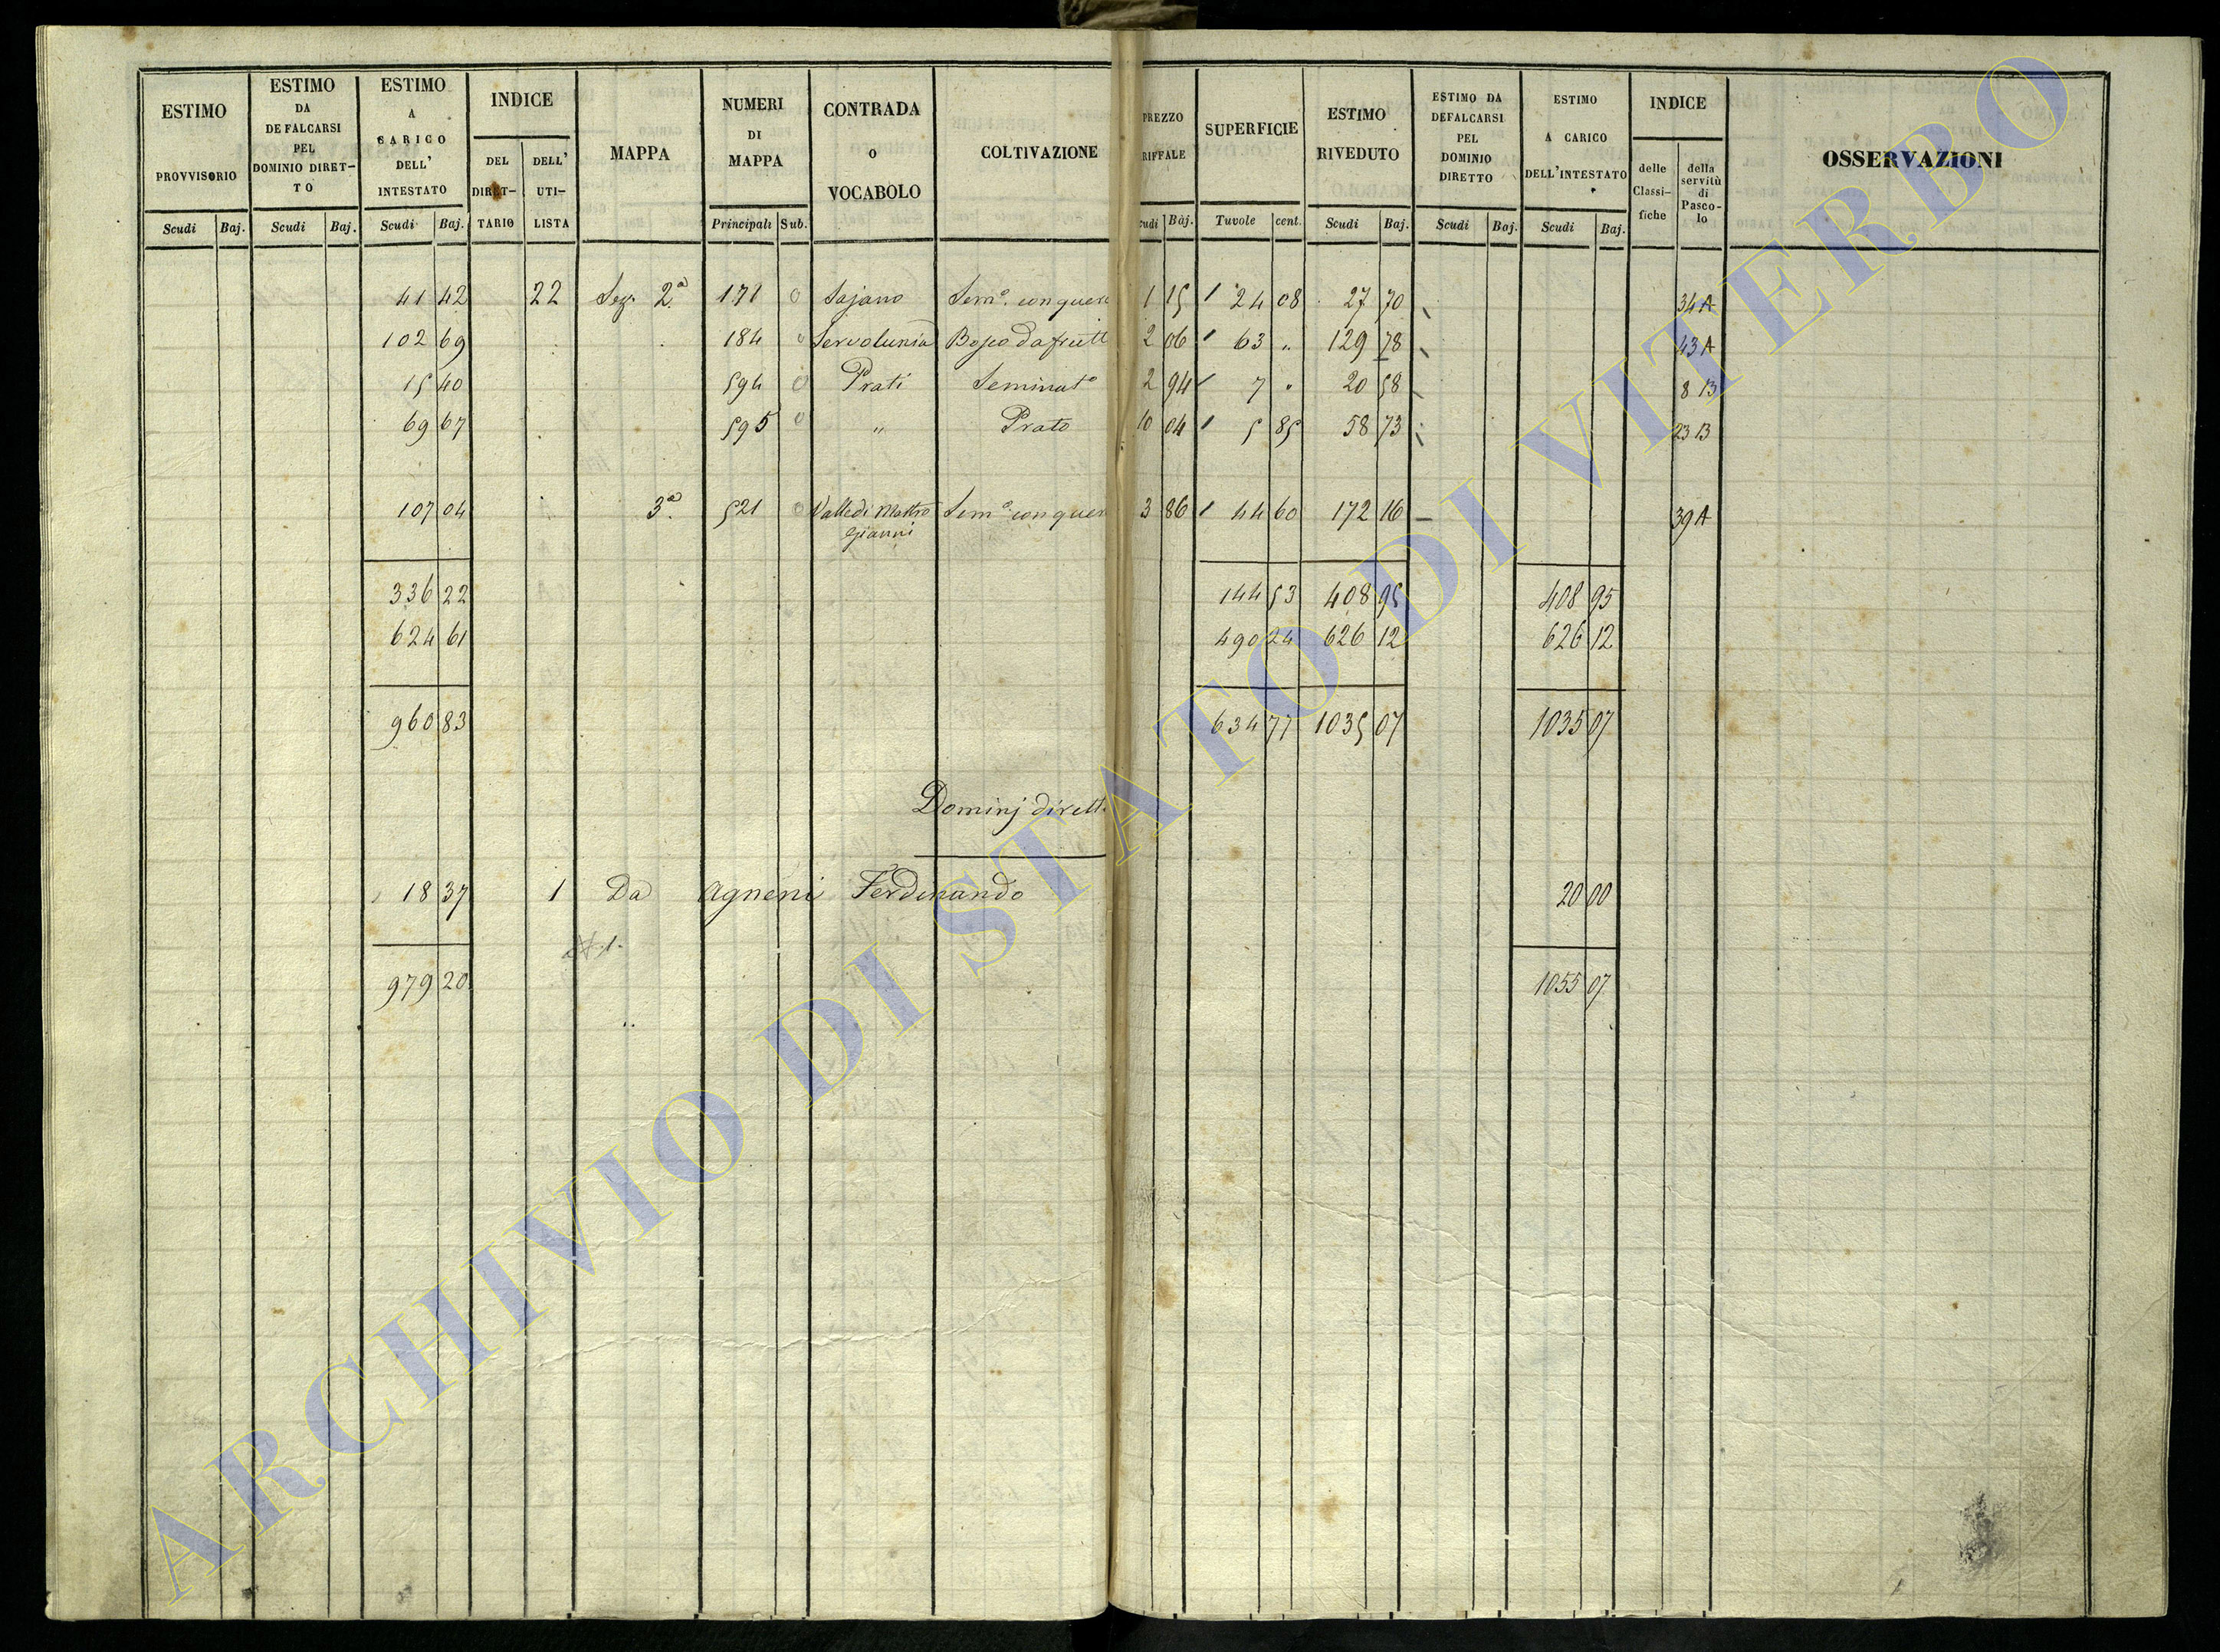 ESTIMO PROVVISORIO | ESTIMO DA DEFALCARSI PEL DOMINIO DIRETTO | ESTIMO A CARICO DELL' INTESTATO | INDICE DEL DIRETTARIO | DELL' UTILISTA | MAPPA | NUMERI DI MAPPA | CONTRADA O VOCABOLO | COLTIVAZIONE | PREZZO RIFFALE | SUPERFICIE | ESTIMO RIVEDUTO | ESTIMO DA DEFALCARSI PEL DOMINIO DIRETTO | ESTIMO A CARICO DELL'INTESTATO | INDICE delle Classifiche | della servitù di Pascolo | OSSERVAZIONI
Scudi Baj. Scudi Baj. Scudi Baj. Principali Sub. udi Baj. Tavole cent. Scudi Baj. Scudi Baj. Scudi Baj.
41 42 22 Sez. 2a 171 0 Sajano Sem.o con querc 1 15 24 08 27 70 34 A
102 69 184 0 Servolunia Bosco da frutt 2 06 63 " 129 78 43 A
15 40 594 0 Prati Seminato 2 94 7 " 20 58 8 B
69 67 595 0 " Prato 10 04 5 85 58 73 23 B
107 04 3a 521 0 Valle di Mastro Sem.o con querc 3 86 44 60 172 16 39 A
Gianni
336 22 144 53 408 95 408 95
624 61 490 24 626 12 626 12
960 83 634 77 1035 07 1035 07
Dominj dirett
18 37 1 Da Agneni Ferdinando 20 00
979 20 1055 07
ARCHIVIO DI STATO DI VITERBO